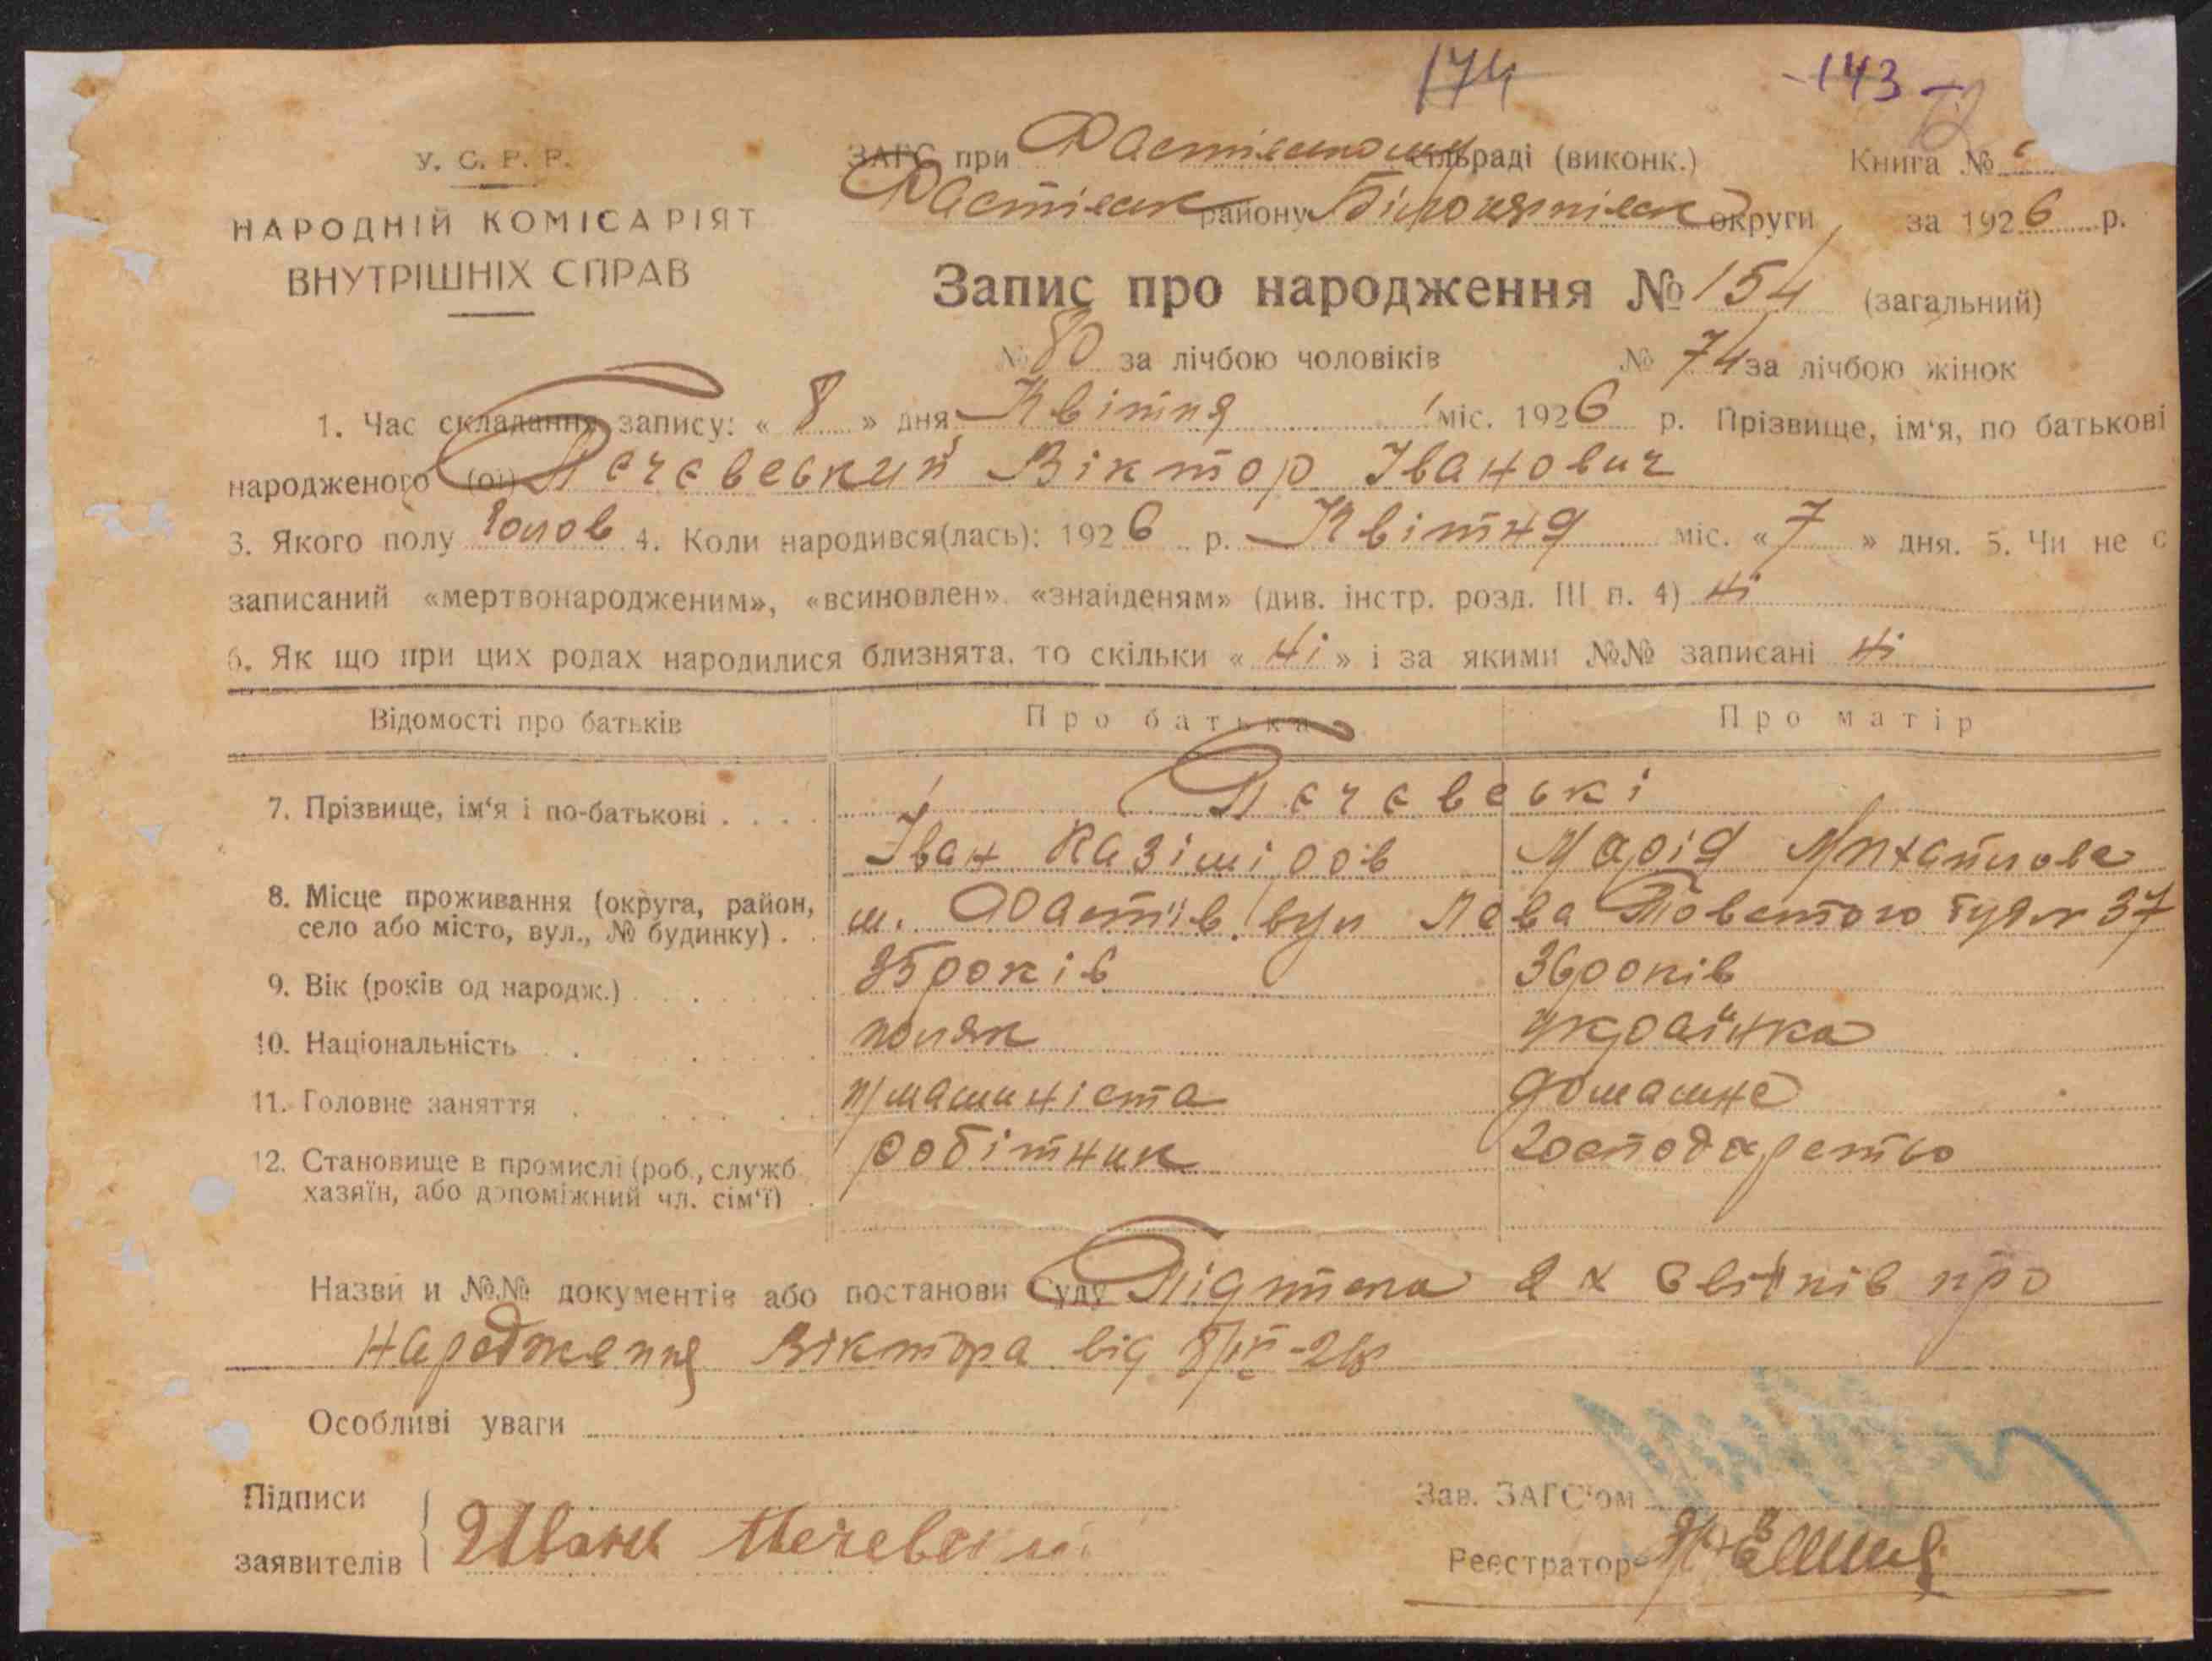 174 -143-
У. С. Р. Р.
НАРОДНІЙ КОМІСАРІЯТ
ВНУТРІШНІХ СПРАВ
ЗАГС при Фастівському сільраді (виконк.) Книга №
Фастівськ району Білоцерківськ округи за 1926 р.
Запис про народження № 154 (загальний)
№ 80 за лічбою чоловіків № 74 за лічбою жінок
1. Час складання запису: « 8 » дня Квітня міс. 1926 р. Прізвище, ім'я, по батькові
народженого (ої) Печевський Віктор Іванович
3. Якого полу Чолов 4. Коли народився(лась): 1926 р. Квітня міс. « 7 » дня. 5. Чи не є
записаний «мертвонародженим», «всиновлен» «знайденям» (див. інстр. розд. III п. 4) ні
6. Як що при цих родах народилися близнята, то скільки « ні » і за якими №№ записані ні
Відомості про батьків Про батька Про матір
7. Прізвище, ім'я і по-батькові . . . . Печєвські
Іван Казіміров Марія Михайлове
8. Місце проживання (округа, район,
село або місто, вул., № будинку) . . м. Фастів вул Лева Товстого 37
9. Вік (років од народж.) 35 років 36 років
10. Національність поляк українка
11. Головне заняття п/машиніста домашнє
12. Становище в промислі (роб., служб.
хазяїн, або допоміжний чл. сім'ї) . робітник господарство
Назви и №№ документів або постанови Суду Підписка 2х свідків про
народження Віктора від 8/IV-26р
Особливі уваги
Підписи
заявителів Иван Печевский
Зав. ЗАГС'ом
Реєстратор